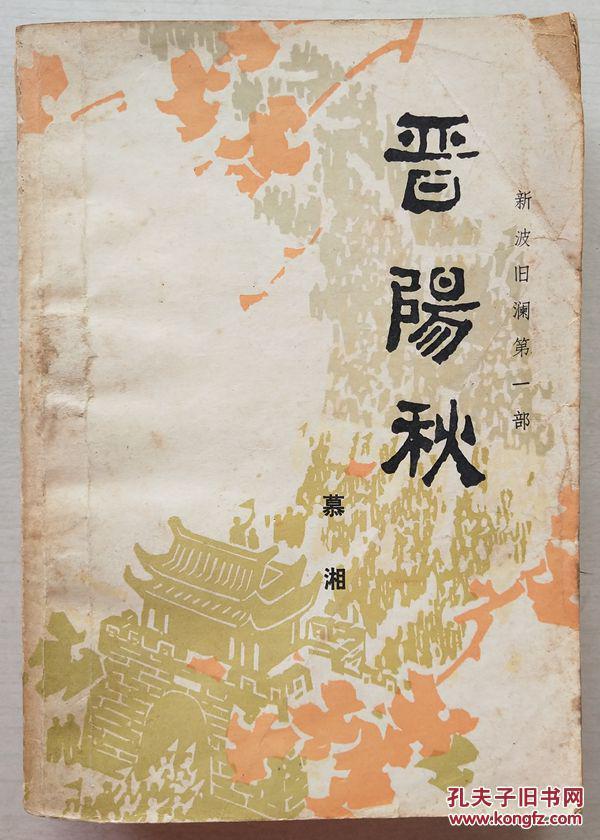 新波旧澜第一部
晋陽秋
慕湘
孔夫子旧书网
www.kongfz.com